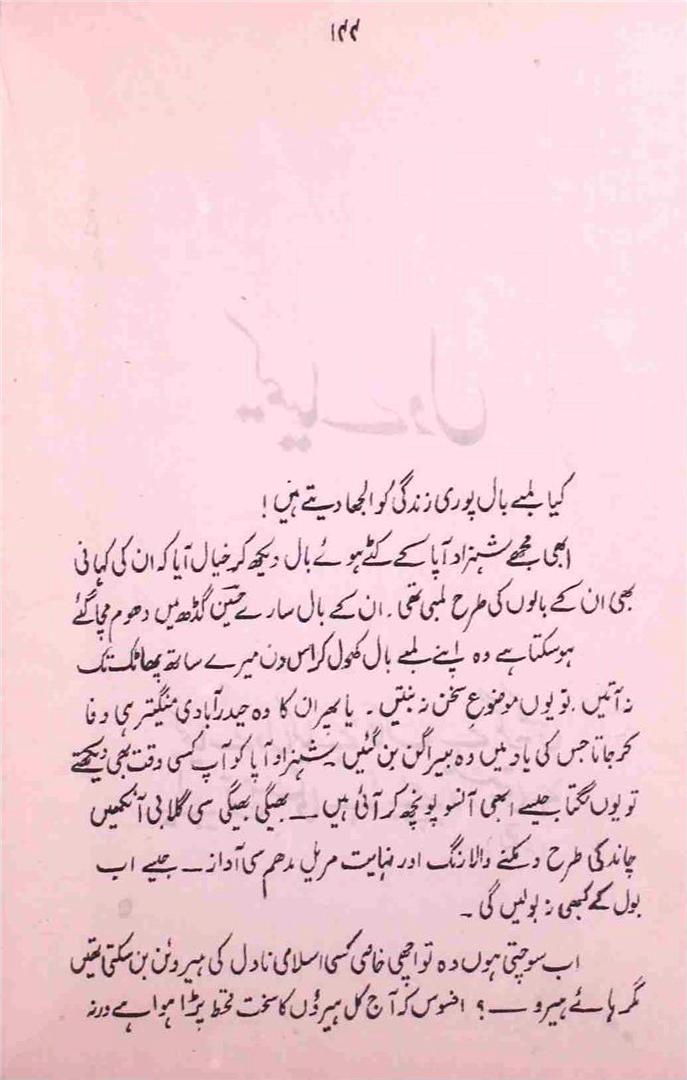 ۱۴۴
کیا لمبے بال پوری زندگی کو الجھا دیتے ہیں!
ابھی مجھے شہزاد آپا کے کٹے ہوئے بال دیکھ کر خیال آیا کہ ان کی کہانی
بھی ان کے بالوں کی طرح لمبی تھی۔ ان کے بال سارے حسین گڈھ میں دھوم مچا گئے
ہو سکتا ہے وہ اپنے لمبے بال کھول کر اس دن میرے ساتھ پھاٹک تک
نہ آتیں۔ تو یوں موضوعِ سخن نہ بنتیں۔ یا پھر ان کا وہ حیدرآبادی منگیتر ہی وفا
کر جاتا جس کی یاد میں وہ بیراگن بن گئیں۔ شہزاد آپا کو آپ کسی وقت بھی دیکھتے
تو یوں لگتا جیسے ابھی آنسو پونچھ کر آئی ہیں — بھیگی بھیگی سی گلابی آنکھیں
چاند کی طرح دمکنے والا رنگ اور نہایت مریل مدھم سی آواز — جیسے اب
بول کے کبھی نہ بولیں گی۔
اب سوچتی ہوں وہ تو اچھی خاصی کسی اسلامی ناول کی ہیروئن بن سکتی تھیں
مگر ہائے ہیرو —؟ افسوس کہ آج کل ہیروؤں کا سخت قحط پڑا ہوا ہے ورنہ